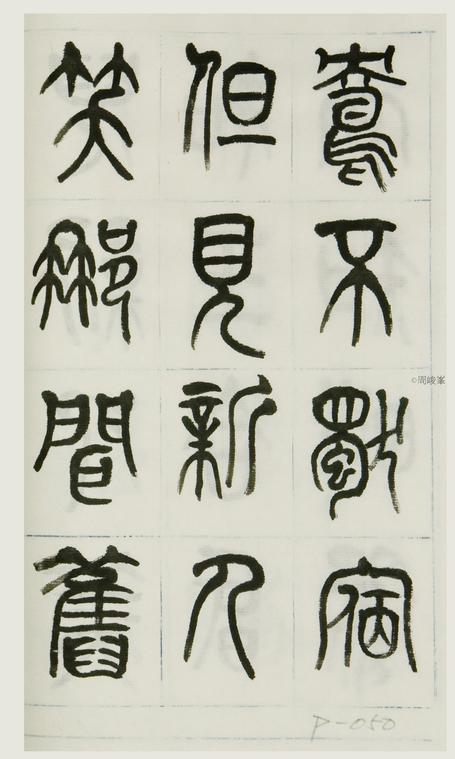 鴦不獨宿
但見新人
笑那聞舊
©周峻峯
P-050